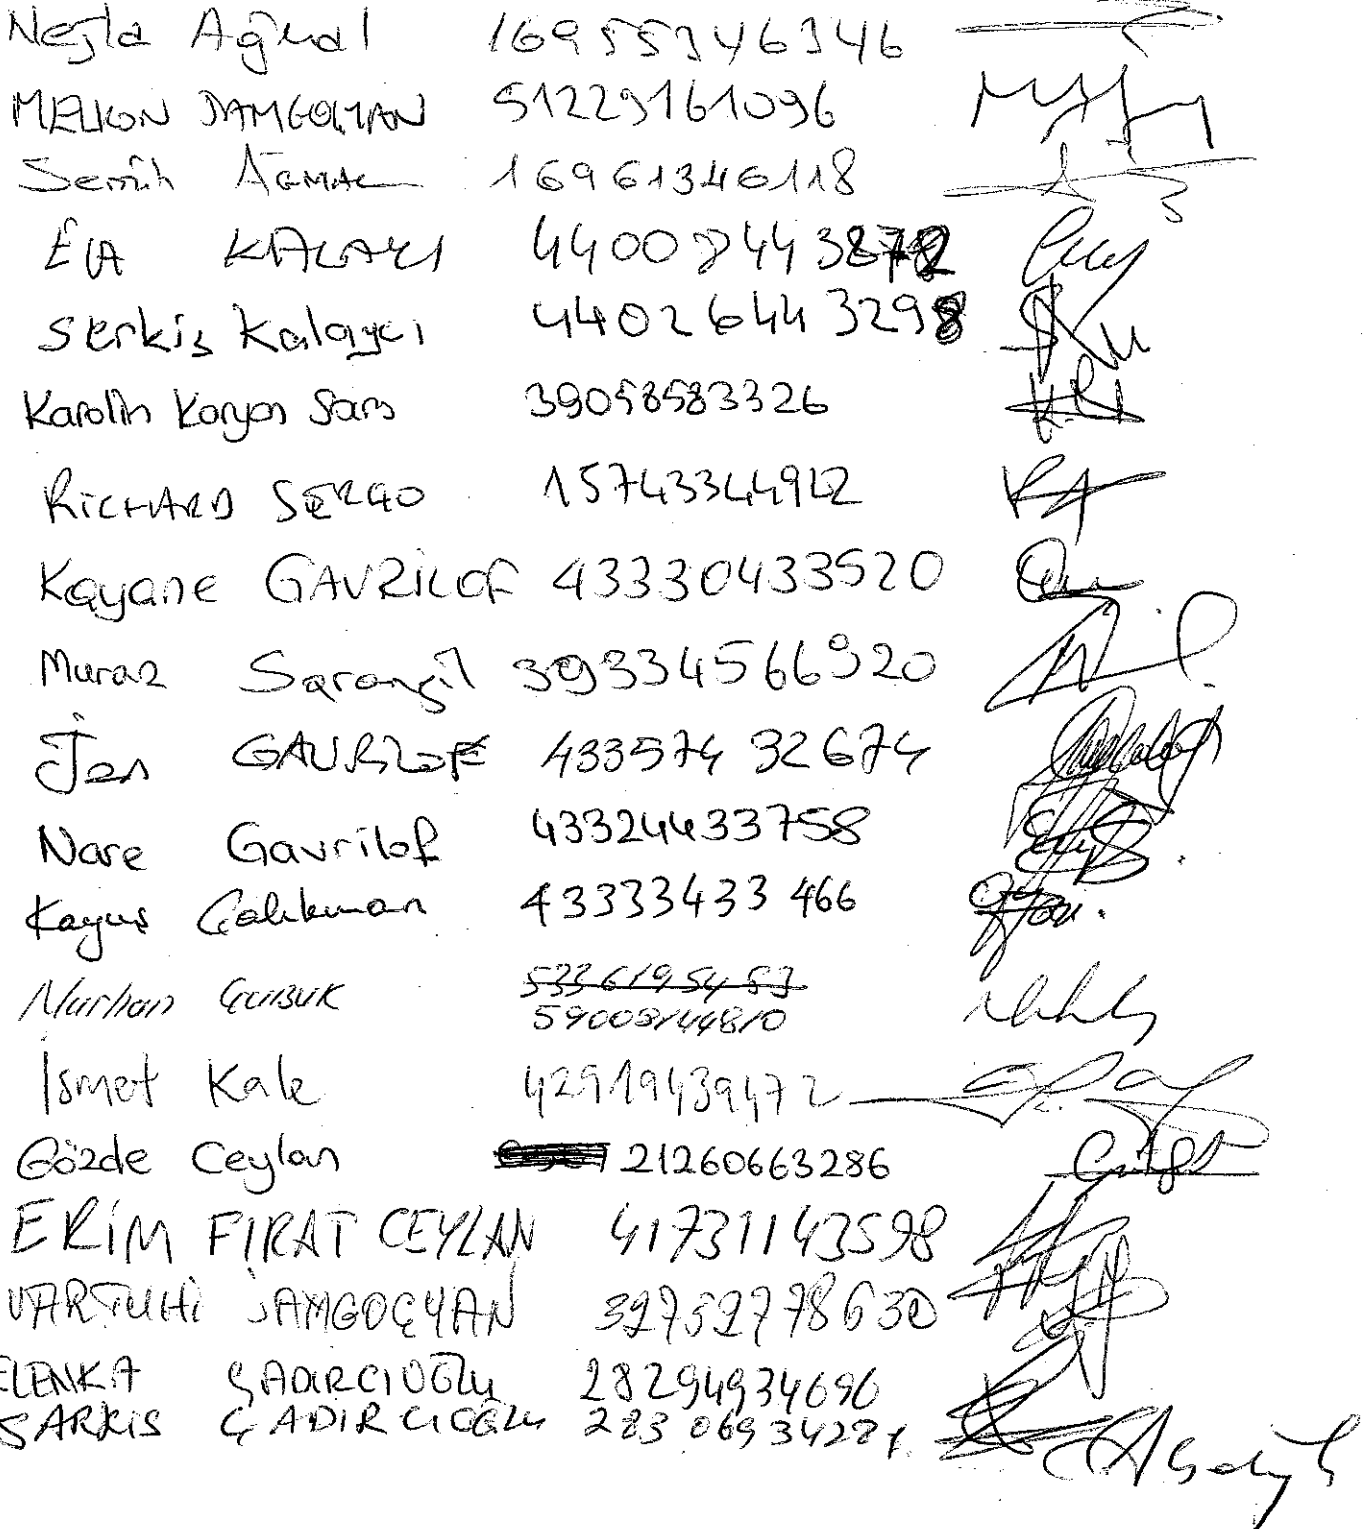 Nejla Ağmal 16955346346
MELKON JAMGOÇYAN 51229161096
Semih AĞMAL 16961346118
ELA KALAYCI
Serkis Kalaycı 44026443298
Karolin Koryan Sars 39058583326
RİCHARD SERGO
Kayane GAVRİLOF 43330433520
Muraz 39334566920
Jan GAVRİLOF 43357432674
Nare Gavrilof 43324433758
Çalıkman 43333433466
Nurhan ÇUBUK 5336195453
59009144810
İsmet Kale 42919439472
Gözde Ceylan 21260663286
ERİM FIRAT CEYLAN 41731143598
VARTUHİ JAMGOÇYAN 32752778630
ELENKA ÇADIRCIOĞLU 28294934696
SARKIS ÇADIRCIOĞLU